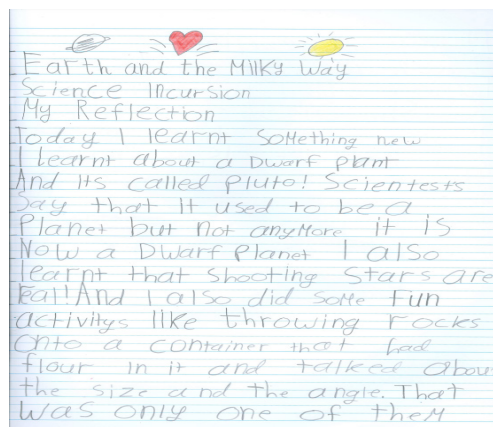 Earth and the Milky Way
Science Incursion
My Reflection
Today I learnt something new
I learnt about a Dwarf plant
And its called Pluto! Scientests
Say that it used to be a
Planet but not anymore it is
Now a Dwarf Planet I also
learnt that shooting stars are
real! And I also did some fun
activitys like throwing rocks
onto a container that had
flour in it and talked abou
the size and the angle. That
was only one of them